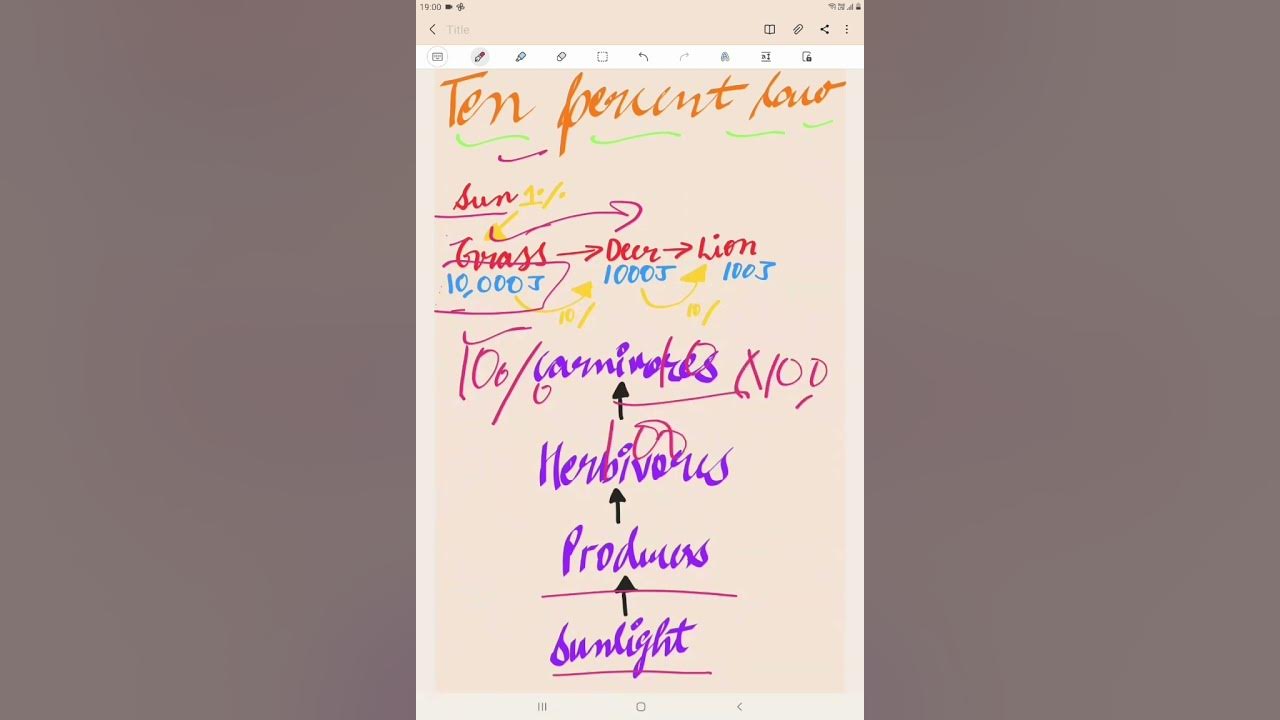 19:00
Title
Ten percent law
Sun 1%
Grass → Deer → Lion
10,000J 1000J 100J
10% 10%
Carnivores
10% 10 X100
100
Herbivores
Producers
Sunlight